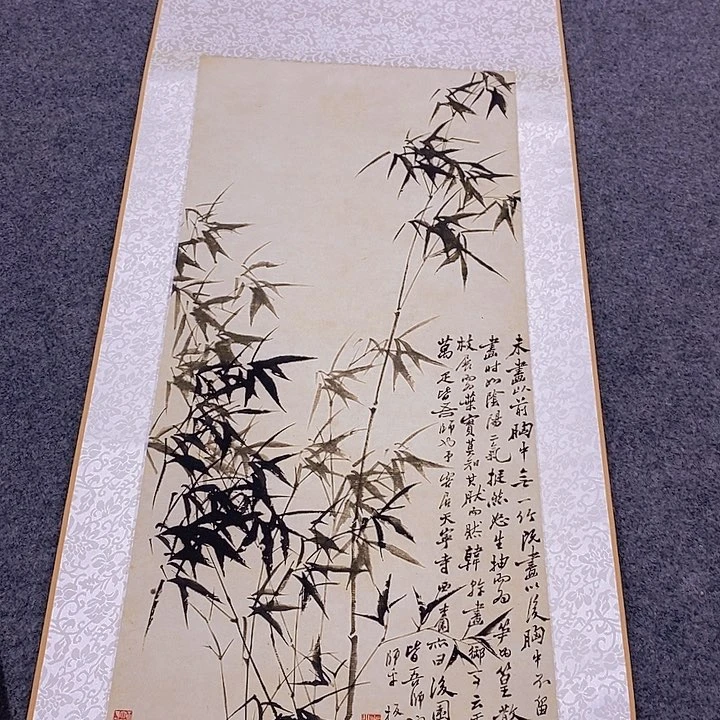 未畫以前胸中無一竹既畫以後胸中不留
畫時如陰陽二氣挺然怒生抽而為筍為篁散
枝展而為葉實莫知其然而然韓幹畫御馬云天
萬疋皆吾師也予客居天寧寺西杏園亦曰後園
皆吾師